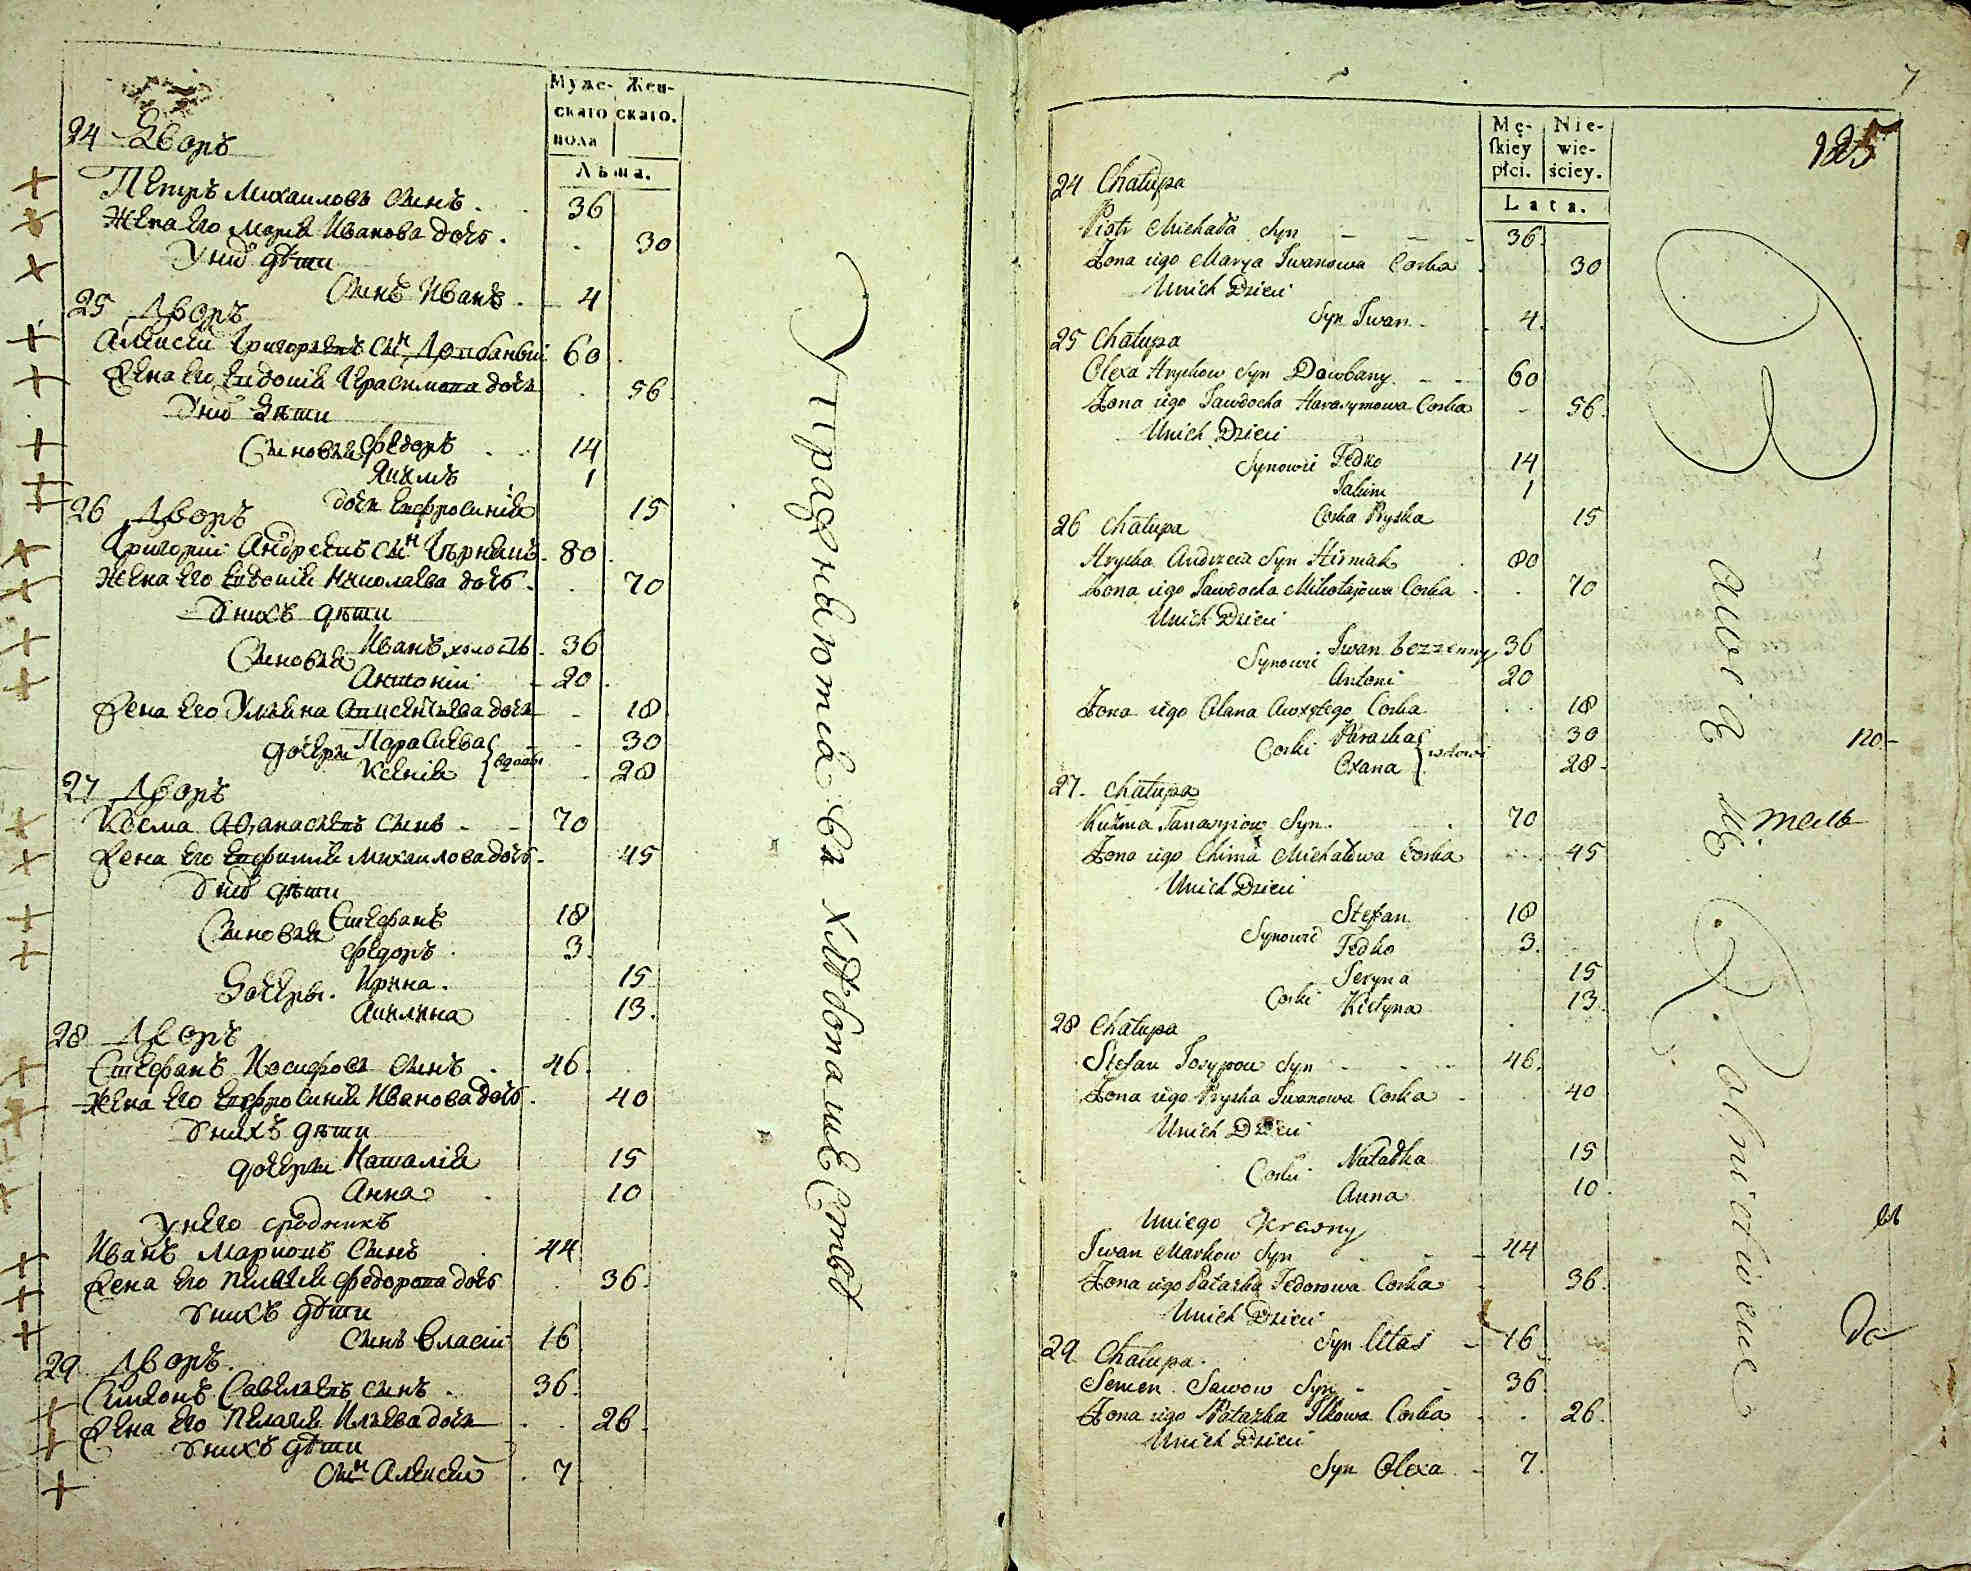 Муже- Жен-
скаго скаго.
пола
Лѣта.
24 Дворъ
Петръ Михаиловъ сынъ. 36
Жена его Марія Иванова дочь. 30
У нихъ дѣти
Сынъ Иванъ. 4
25 Дворъ
Алексѣй Григорьевъ сынъ Довбанвій 60
Жена его Евдокія Герасимова дочь 56
У нихъ дѣти
Сыновья Федоръ 14
Якимъ 1
дочь Евфросинія 15
26 Дворъ
Григорій Андреевъ сынъ 80
Жена его Евдокія Николаева дочь. 70
У нихъ дѣти
Сыновья Иванъ холостъ. 36
Антоній 20
Жена его Ульяна Авксентьева дочь 18
дочери Парасцева 30
Ксенія вдовы 28
27 Дворъ
Косма Афанасьевъ сынъ 70
Жена его Евфимія Михаилова дочь. 45
У нихъ дѣти
Сыновья Стефанъ 18
Федоръ. 3.
Дочери. Ирина. 15
Акилина 13.
28 Дворъ
Стефанъ Иосифовъ сынъ. 46.
Жена его Евфросинія Иванова дочь. 40
У нихъ дѣти
дочери Наталія 15
Анна 10
У него сродникъ
Иванъ Марковъ сынъ 44
Жена его Пелагія Федорова дочь 36.
У нихъ дѣти
сынъ Власій 16
29 Дворъ.
Симеонъ Савельевъ сынъ. 36.
Жена его Пелагія Ильева дочь 26.
У нихъ дѣти
сынъ Алексѣй 7.
Упражняются въ хлѣбопашествѣ
7
125
Mę- Nie-
skiey wie-
płci. ściey.
Lata.
24 Chałupa
Piotr Michała Syn 36.
Żona iego Marya Iwanowa Corka 30
U nich Dzieci
Syn Iwan. 4.
25 Chałupa
Olexa Hryckow Syn Dowbany. 60
Żona iego Jawdocka Harasymowa Corka 56.
U nich Dzieci
Synowie Fedko 14
Jakim 1
Corka Pryska 15
26 Chałupa
Hrycka Andrzeia Syn Hirniak 80
Żona iego Jawdocka Mikołajowa Corka 70
U nich Dzieci
Synowie Iwan bezzenny 36
Antoni 20
Żona iego Olana Corka 18
Corki Paraska 30
Oxana wdowi 28.
27. Chałupa
Kuźma Tanasyiow Syn. 70
Żona iego Chima Michałowa Corka 45
U nich Dzieci
Synowie Stefan 18
Fedko 3.
Corki Jeryna 15
Kiełyna 13
28 Chałupa
Stefan Josypow Syn 46.
Żona iego Pryska Iwanowa Corka 40
U nich Dzieci
Corki Natałka 15
Anna 10.
U niego Krewny
Iwan Markow Syn 44
Żona iego Pałazka Fedorowa Corka 36.
U nich Dzieci
Syn Ułas 16.
29 Chałupa.
Semen Sawow Syn 36
Żona iego Pałazka Ilkowa Corka 26.
U nich Dzieci
Syn Olexa 7.
Bawią się Rolnictwem
по-
тель